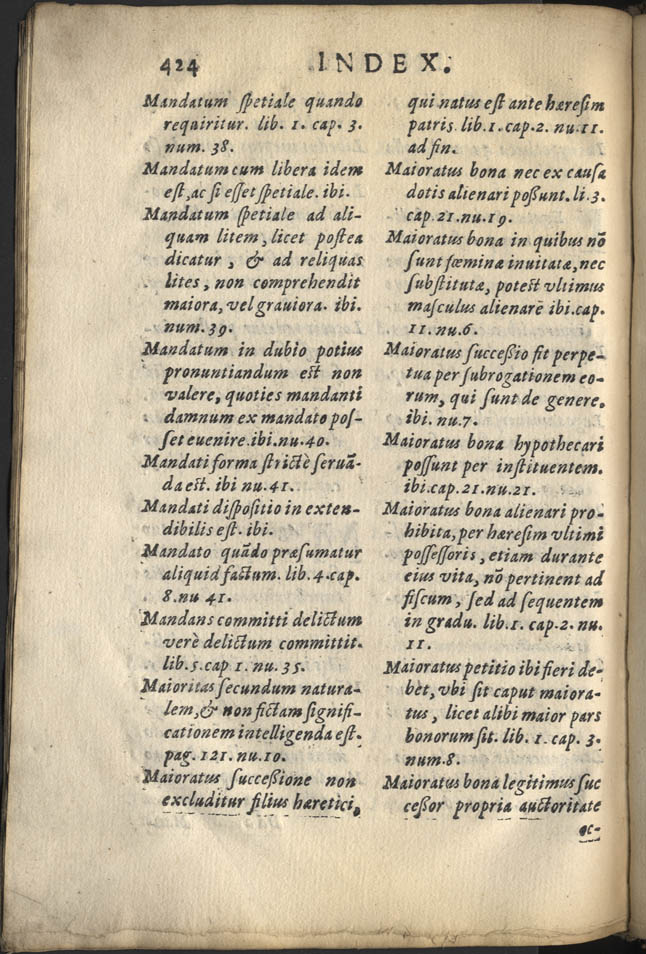 424 INDEX.
Mandatum ſpetiale quando
requiritur. lib. 1. cap. 3.
num. 38.
Mandatum cum libera idem
eſt, ac ſi eſſet ſpetiale. ibi.
Mandatum ſpetiale ad ali-
quam litem, licet poſtea
dicatur, & ad reliquas
lites, non comprehendit
maiora, vel grauiora. ibi.
num. 39.
Mandatum in dubio potius
pronuntiandum eſt non
valere, quoties mandanti
damnum ex mandato poſ-
ſet euenire. ibi. nu. 40.
Mandati forma ſtrictè ſeruā-
da eſt. ibi nu. 41.
Mandati diſpoſitio in exten-
dibilis eſt. ibi.
Mandato quādo præſumatur
aliquid factum. lib. 4. cap.
8. nu 41.
Mandans committi delictum
verè delictum committit.
lib. 5. cap 1. nu. 35.
Maioritas ſecundum natura-
lem, & non fictam ſignifi-
cationem intelligenda eſt.
pag. 121. nu. 10.
Maioratus ſucceßione non
excluditur filius hæretici,
qui natus eſt ante hæreſim
patris lib. 1. cap. 2. nu. 11.
ad fin.
Maioratus bona nec ex cauſa
dotis alienari poßunt. li. 3.
cap. 21. nu. 19.
Maioratus bona in quibus nō
ſunt fœminæ inuitatæ, nec
ſubſtitutæ, poteſt vltimus
maſculus alienare ibi. cap.
11. nu. 6.
Maioratus ſucceßio fit perpe-
tua per ſubrogationem eo-
rum, qui ſunt de genere.
ibi. nu. 7.
Maioratus bona hypothecari
poſſunt per inſtituentem.
ibi. cap. 21. nu. 21.
Maioratus bona alienari pro-
hibita, per hæreſim vltimi
poſſeſſoris, etiam durante
eius vita, nō pertinent ad
fiſcum, ſed ad ſequentem
in gradu. lib. 1. cap. 2. nu.
11.
Maioratus petitio ibi fieri de-
bèt, vbi ſit caput maiora-
tus, licet alibi maior pars
bonorum ſit. lib. 1. cap. 3.
num. 8.
Maioratus bona legitimus ſuc
ceßor propria auctoritate
oc-